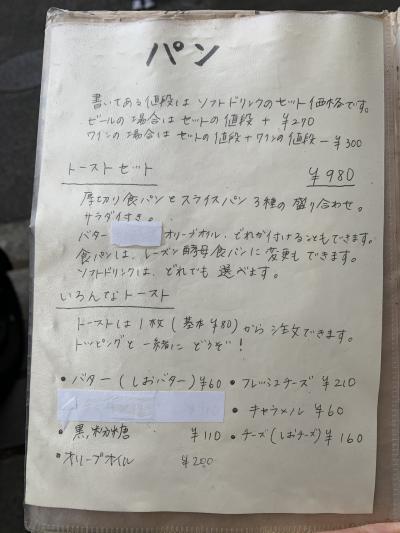 パン
書いてある値段は ソフトドリンクのセット価格です。
ビールの場合は セットの値段 + ¥270
ワインの場合は セットの値段+ワインの値段-¥300
トーストセット ¥980
厚切り食パンとスライスパン 3種の盛り合わせ。
サラダ付き。
バター オリーブオイル、どれか付けることもできます。
食パンは、レーズン酵母食パンに変更もできます。
ソフトドリンクは、どれでも選べます。
いろんなトースト
トーストは1枚(基本¥80)から注文できます。
トッピングと一緒にどうぞ!
• バター(しおバター)¥60 • フレッシュチーズ ¥210
• キャラメル ¥60
• 黒粉糖 ¥110 • チーズ(しおチーズ)¥160
• オリーブオイル ¥200